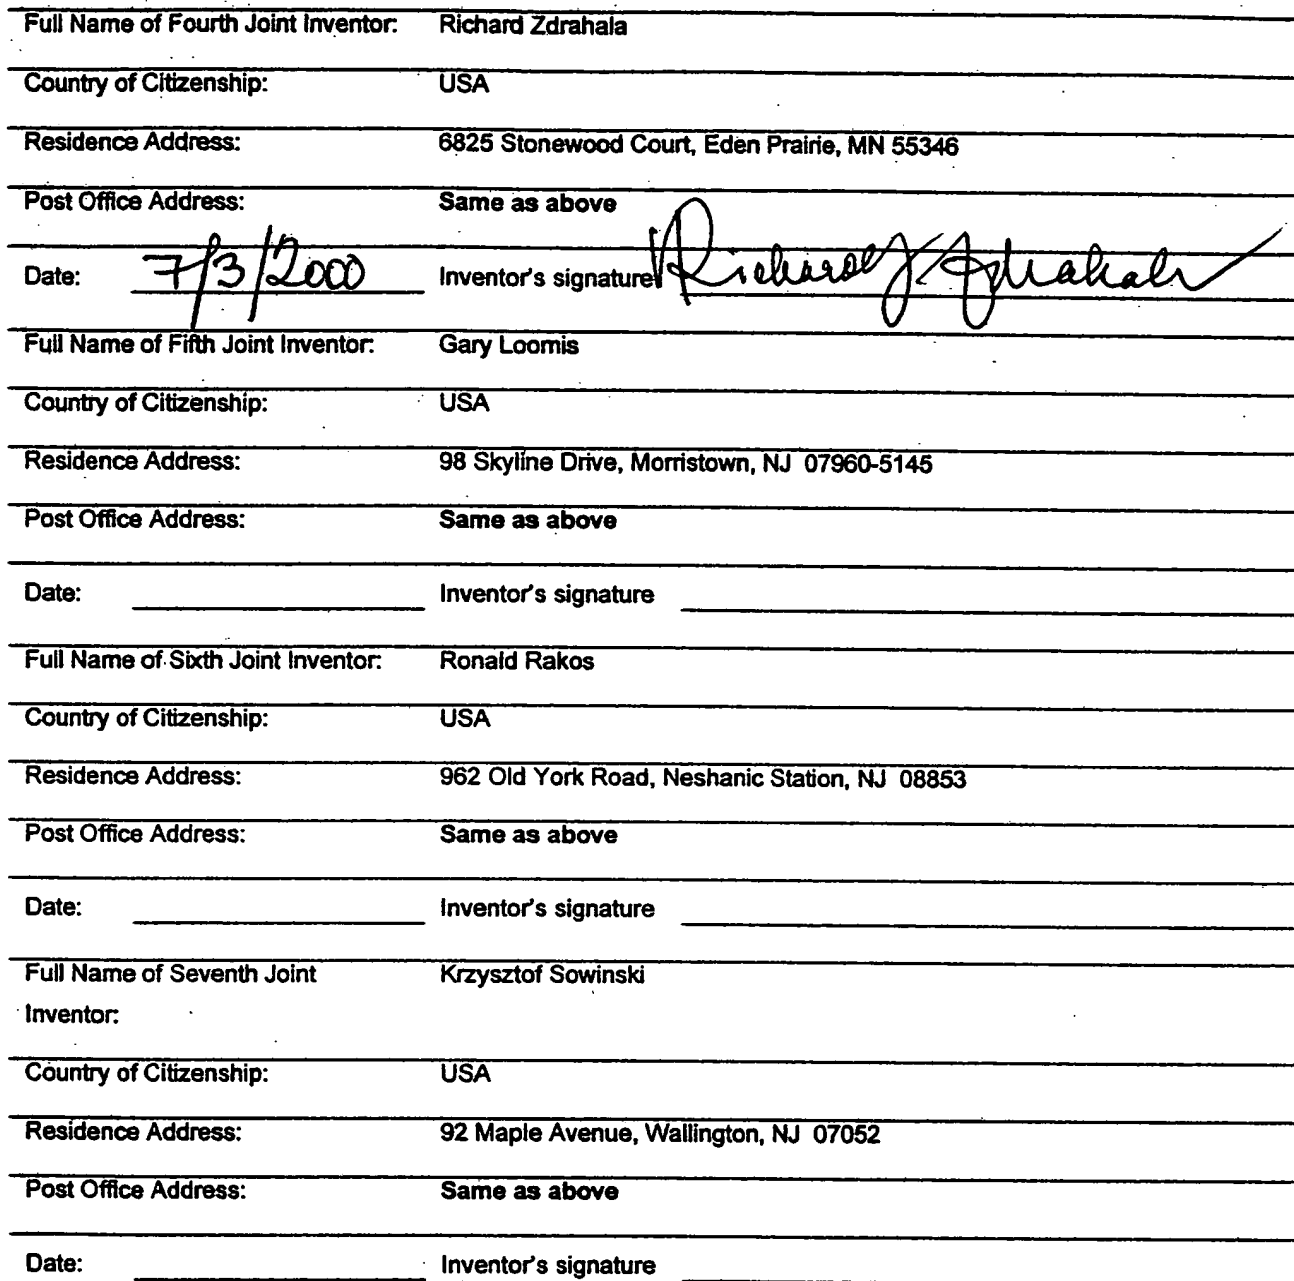 Full Name of Fourth Joint Inventor: Richard Zdrahala
Country of Citizenship: USA
Residence Address: 6825 Stonewood Court, Eden Prairie, MN 55346
Post Office Address: Same as above
Date: 7/3/2000 Inventor's signature Richard J. Zdrahala
Full Name of Fifth Joint Inventor: Gary Loomis
Country of Citizenship: USA
Residence Address: 98 Skyline Drive, Morristown, NJ 07960-5145
Post Office Address: Same as above
Date: Inventor's signature
Full Name of Sixth Joint Inventor: Ronald Rakos
Country of Citizenship: USA
Residence Address: 962 Old York Road, Neshanic Station, NJ 08853
Post Office Address: Same as above
Date: Inventor's signature
Full Name of Seventh Joint Krzysztof Sowinski
Inventor:
Country of Citizenship: USA
Residence Address: 92 Maple Avenue, Wallington, NJ 07052
Post Office Address: Same as above
Date: Inventor's signature